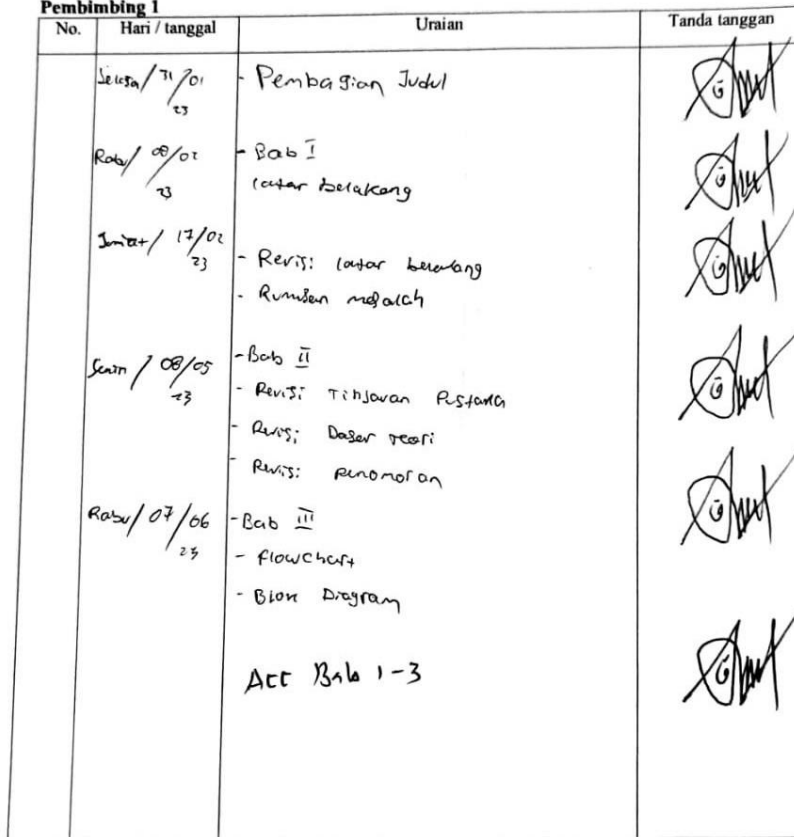 Pembimbing 1
No. Hari / tanggal Uraian Tanda tanggan
Selasa / 31/01 - Pembagian Judul
23
Rabu / 08/02 - Bab I
23 latar belakang
Jum'at / 17/02
23 - Revisi latar belakang
- Rumusan masalah
Senin / 08/05 - Bab II
23 - Revisi Tinjauan Pustaka
- Revisi Dasar teori
- Revisi penomoran
Rabu / 07/06 - Bab III
23 - Flowchart
- Blok Diagram
Acc Bab 1-3